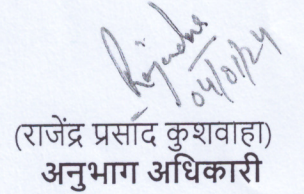 Rajendra
04/01/24
(राजेंद्र प्रसाद कुशवाहा)
अनुभाग अधिकारी